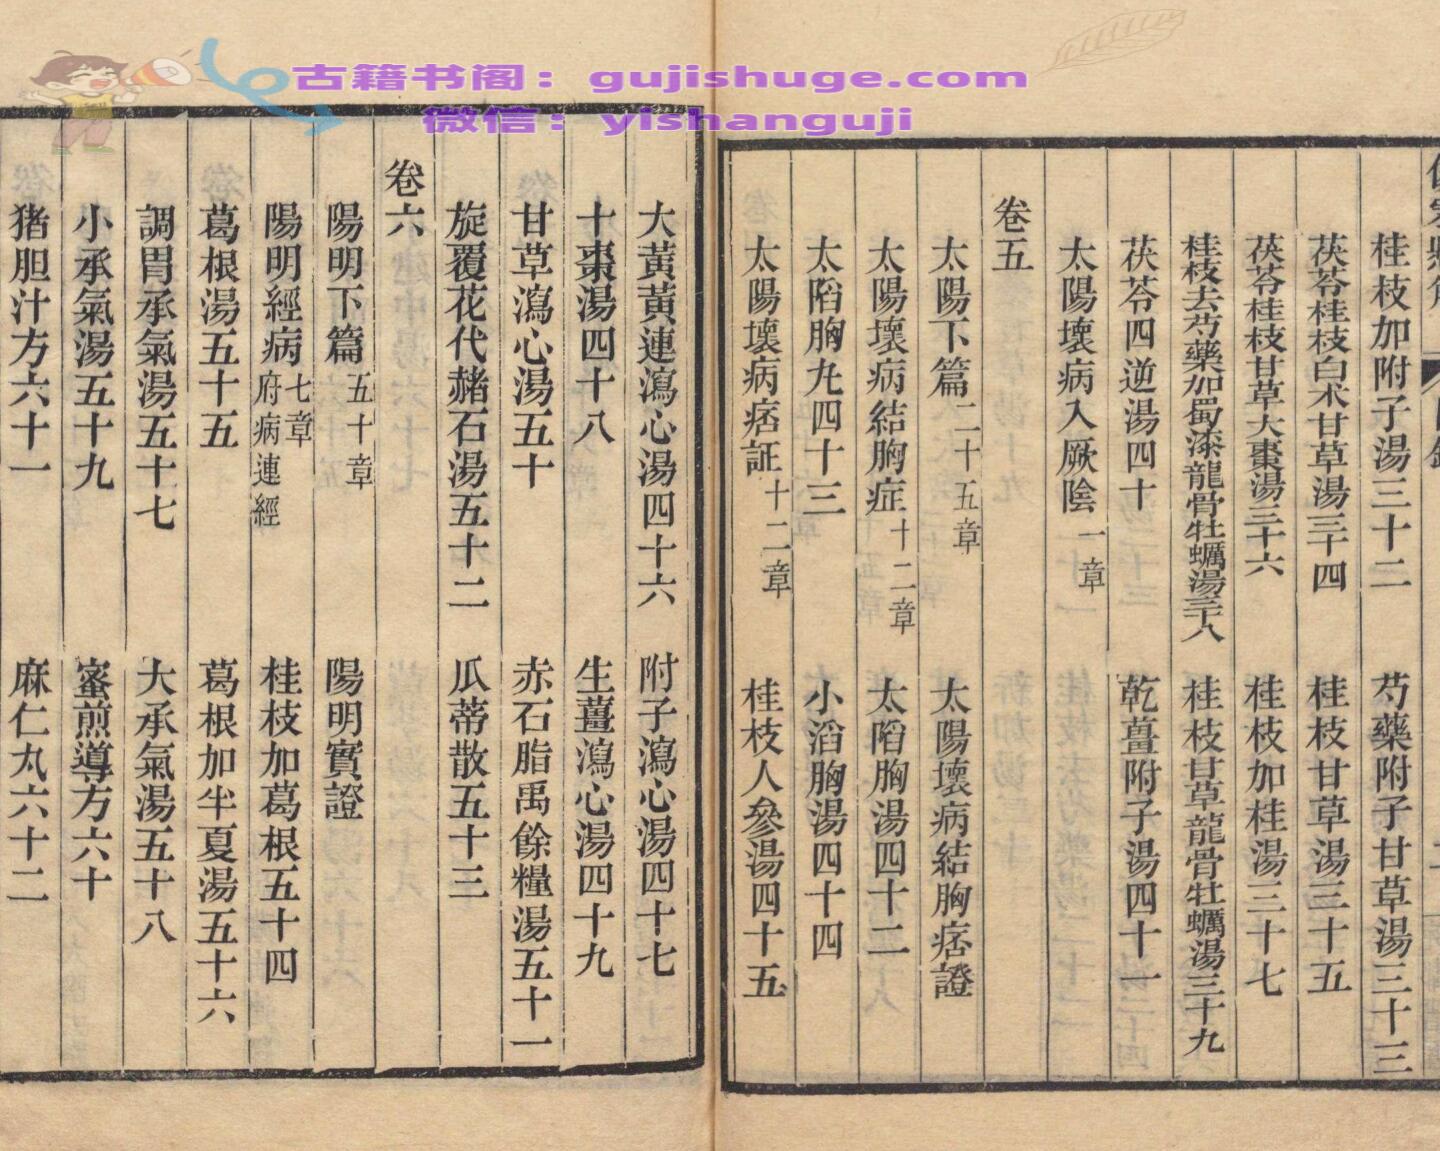 古籍书阁：gujishuge.com
微信：yishanguji
桂枝加附子湯三十二　芍藥附子甘草湯三十三
茯苓桂枝白术甘草湯三十四　桂枝甘草湯三十五
茯苓桂枝甘草大棗湯三十六　桂枝加桂湯三十七
桂枝去芍藥加蜀漆龍骨牡蠣湯三十八　桂枝甘草龍骨牡蠣湯三十九
茯苓四逆湯四十　乾薑附子湯四十一
太陽壞病入厥陰一章
卷五
太陽下篇二十五章　太陽壞病結胸痞證
太陽壞病結胸症十二章　大陷胸湯四十二
大陷胸九四十三　小滔胸湯四十四
太陽壞病痞証十二章　桂枝人參湯四十五
大黃黃連瀉心湯四十六　附子瀉心湯四十七
十棗湯四十八　生薑瀉心湯四十九
甘草瀉心湯五十　赤石脂禹餘糧湯五十一
旋覆花代赭石湯五十二　瓜蒂散五十三
卷六
陽明下篇五十章　陽明實證
陽明經病七章府病連經　桂枝加葛根五十四
葛根湯五十五　葛根加半夏湯五十六
調胃承氣湯五十七　大承氣湯五十八
小承氣湯五十九　蜜煎導方六十
猪胆汁方六十一　麻仁丸六十二